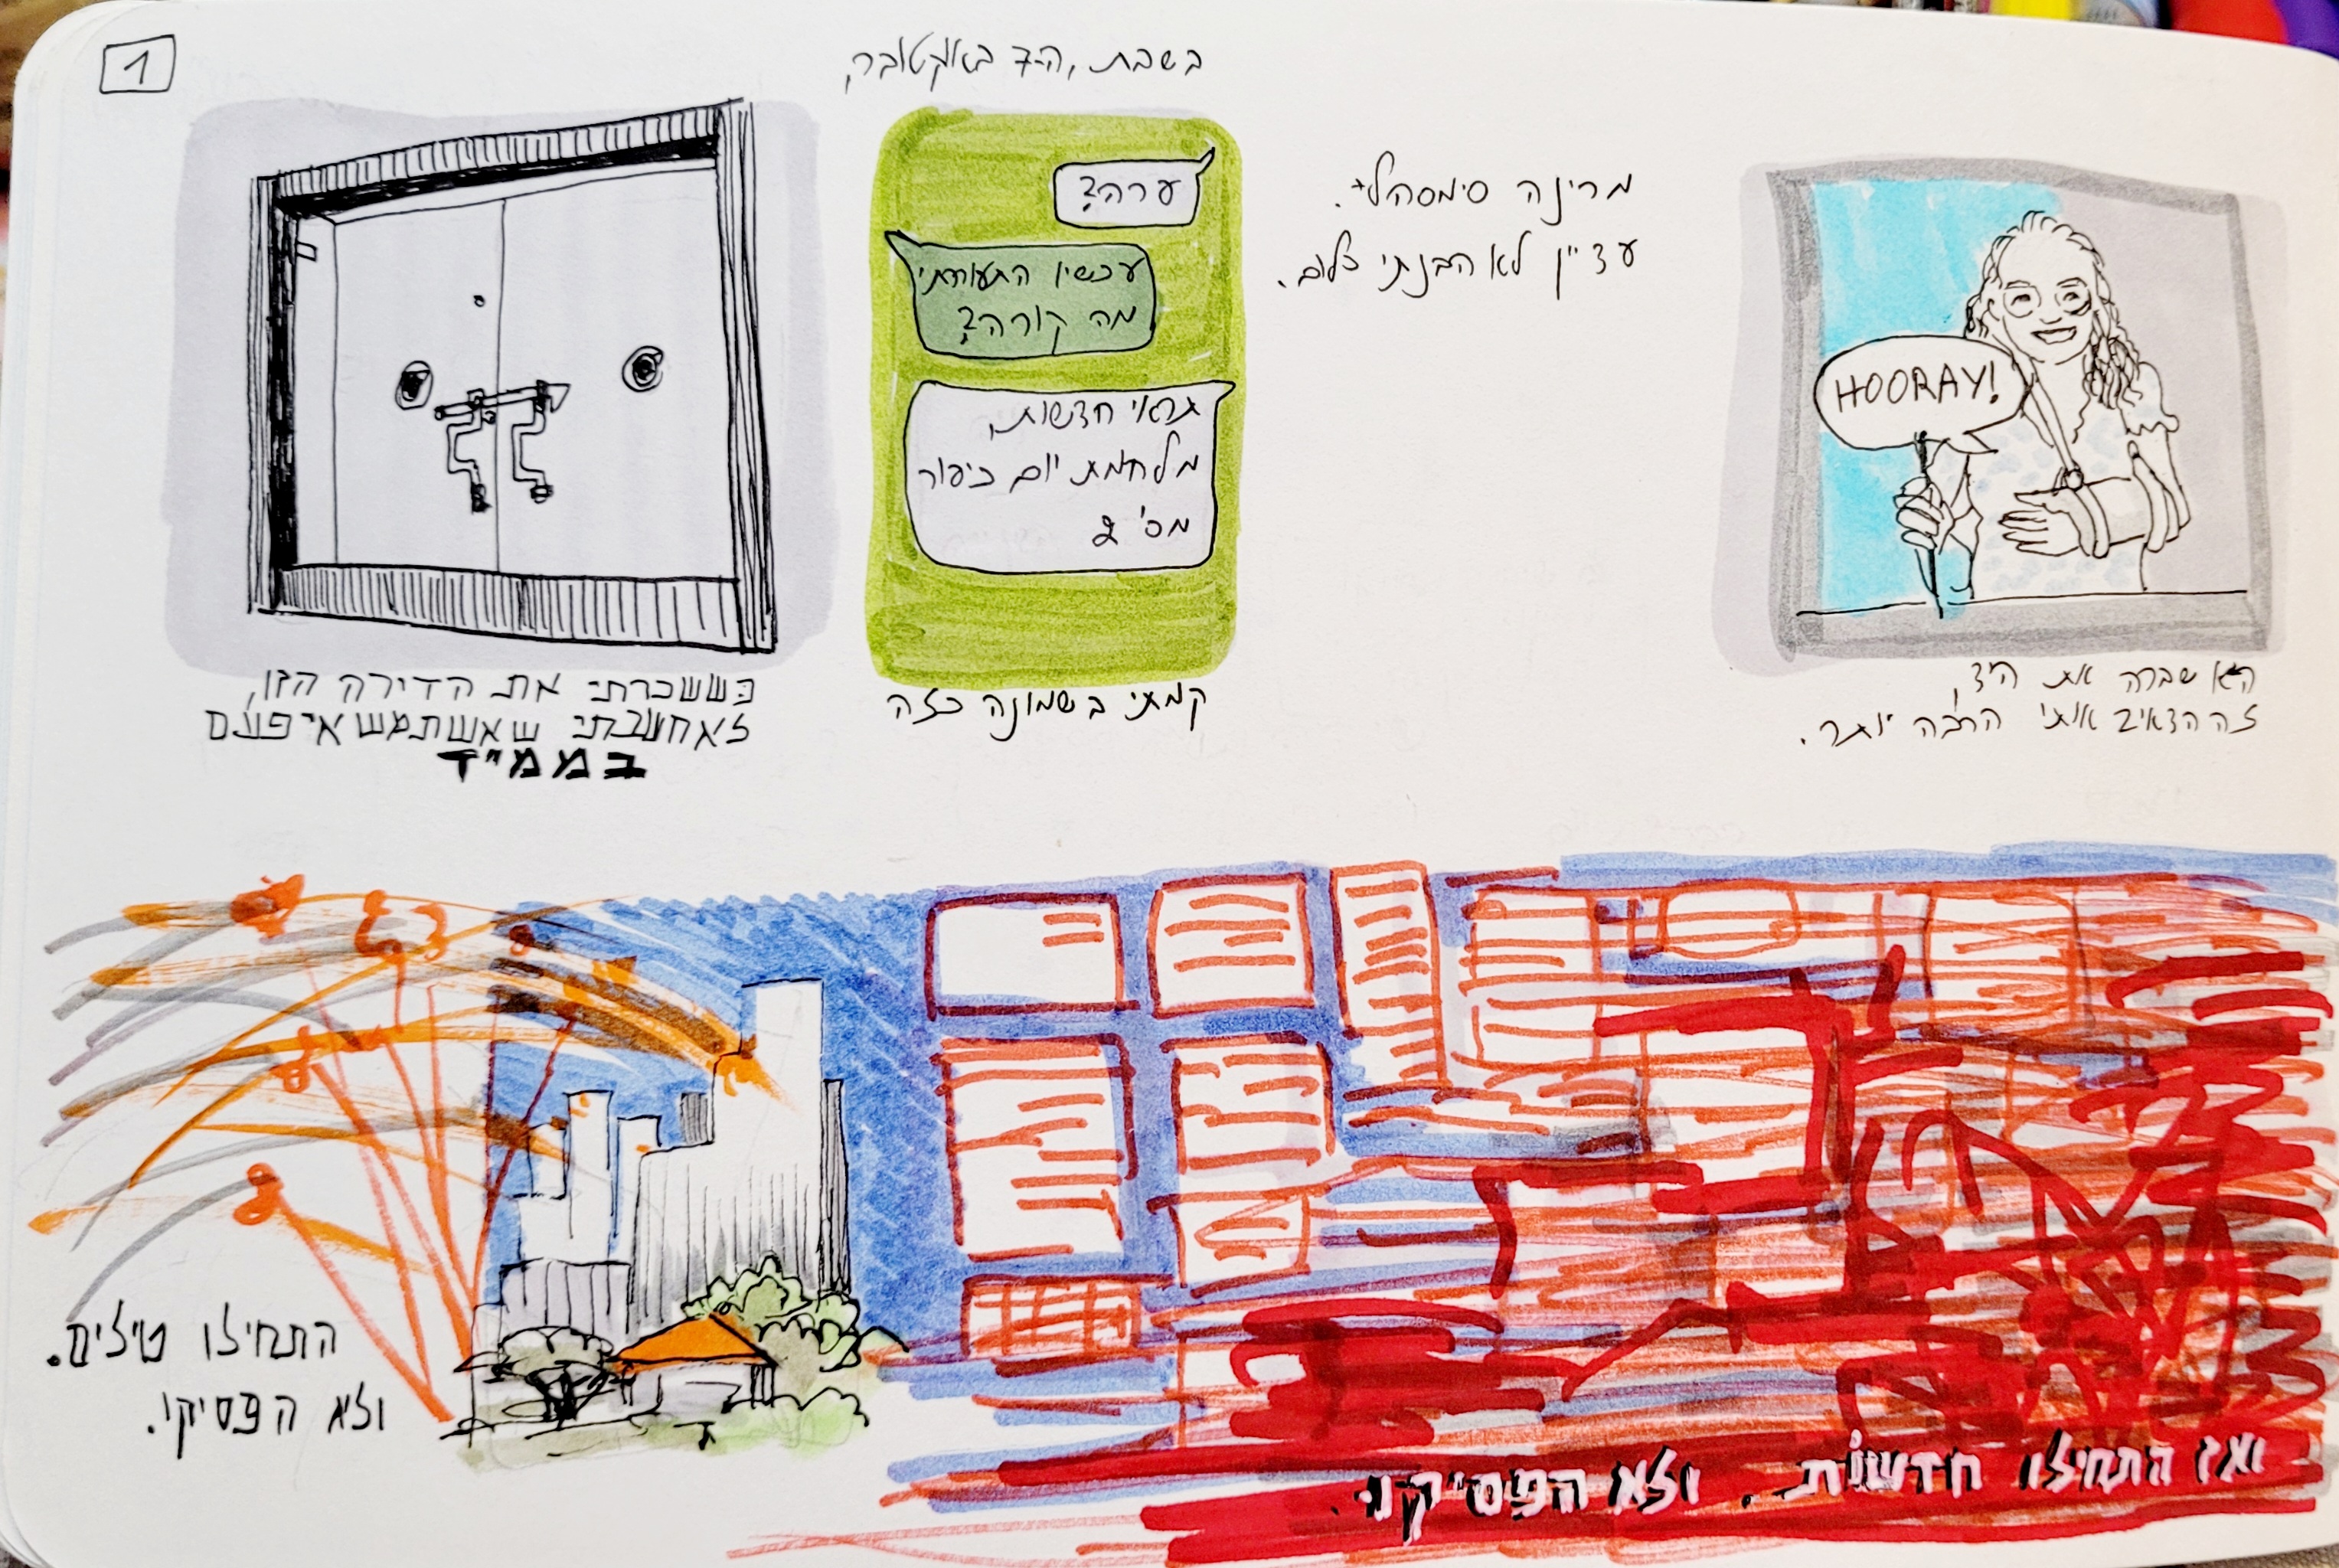 1
כששכרתי את הדירה הזו,
לא חשבתי שאשתמש אי פעם
בממ"ד
בשבת, ה-7 באוקטובר,
ערה?
עכשיו התעוררתי
מה קורה?
תראי חדשות,
מלחמת יום כיפור
מס' 2
קמתי בשמונה כזה
מרינה סימסה לי.
עדיין לא הבנתי כלום.
HOORAY!
היא שברה את היד,
זה הדאיג אותי הרבה יותר.
התחילו טילים.
ולא הפסיקו.
ואז התחילו חדשות. ולא הפסיקו.